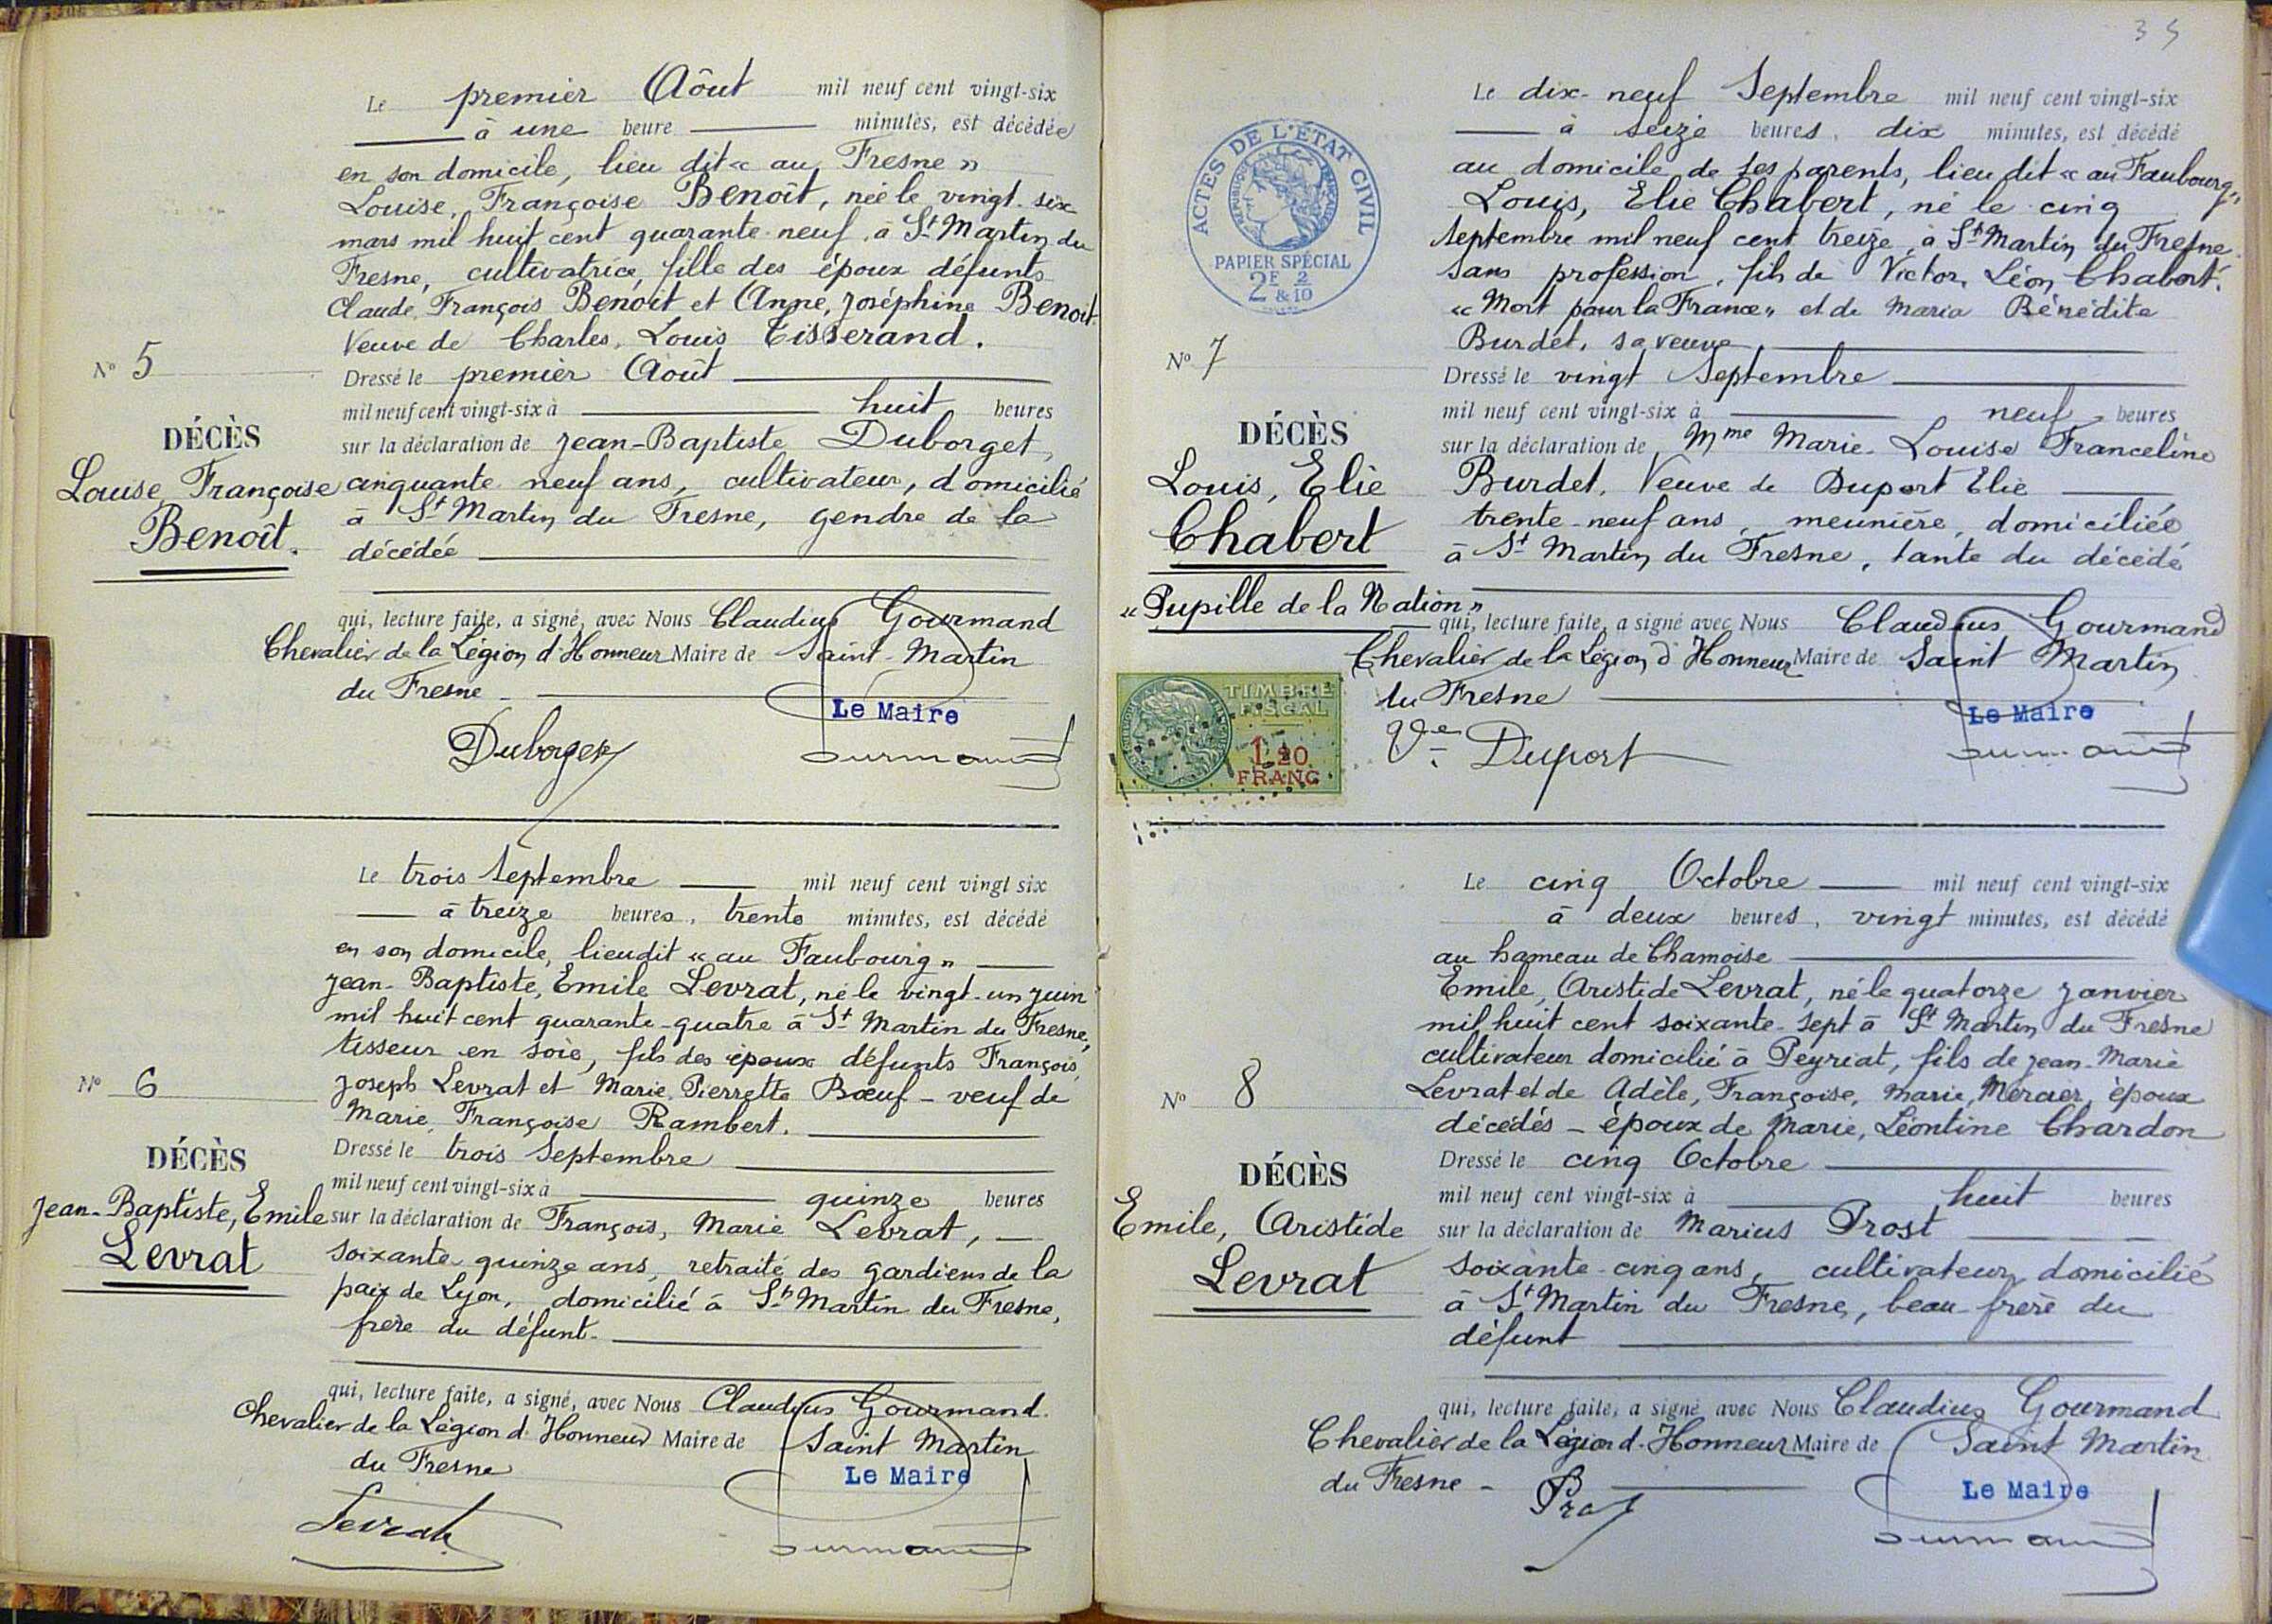 Le premier Aôut mil neuf cent vingt-six
à une heure minutes, est décédée
en son domicile, lieu dit « au Fresne »
Louise, Françoise Benoît, née le vingt-six
mars mil huit cent quarante-neuf, à St Martin du
Fresne, cultivatrice, fille des époux défunts
Claude, François Benoit et Anne, Joséphine Benoit.
Veuve de Charles, Louis Tisserand.
No 5
Dressé le premier Aôut
mil neuf cent vingt-six à huit heures
DÉCÈS
sur la déclaration de Jean-Baptiste Duborget,
Louise Françoise
cinquante neuf ans, cultivateur, domicilié
Benoît.
à St Martin du Fresne, gendre de la
décédée
qui, lecture faite, a signé, avec Nous Claudius Gourmand
Chevalier de la Légion d'Honneur Maire de Saint-Martin
du Fresne
Le Maire
Duborget
Le trois Septembre mil neuf cent vingt six
à treize heures, trente minutes, est décédé
en son domicile, lieudit « au Faubourg »
Jean-Baptiste, Emile Levrat, né le vingt-un Juin
mil huit cent quarante-quatre à St Martin du Fresne,
tisseur en soie, fils des époux défunts François,
Joseph Levrat et Marie, Pierrette Bœuf - veuf de
No 6
Marie, Françoise Rambert.
Dressé le trois Septembre
DÉCÈS
mil neuf cent vingt-six à quinze heures
Jean-Baptiste, Emile
sur la déclaration de François, Marie Levrat,
Levrat
soixante quinze ans, retraité des gardiens de la
paix de Lyon, domicilié à St Martin du Fresne,
frère du défunt.
qui, lecture faite, a signé, avec Nous Claudius Gourmand.
Chevalier de la Légion d'Honneur Maire de Saint Martin
du Fresne
Le Maire
Levrat
35
ACTES DE L'ÉTAT CIVIL
RÉPUBLIQUE FRANÇAISE
PAPIER SPÉCIAL
2E 2
& 10
Le dix-neuf Septembre mil neuf cent vingt-six
à seize heures, dix minutes, est décédé
au domicile de ses parents, lieu dit « au Faubourg »
Louis, Elie Chabert, né le cinq
Septembre mil neuf cent treize, à St Martin du Fresne
sans profession, fils de Victor, Léon Chabert.
« Mort pour la France » et de Maria Bénédite
Burdet, sa veuve
No 7
Dressé le vingt Septembre
mil neuf cent vingt-six à neuf heures
DÉCÈS
sur la déclaration de Mme Marie-Louise Franceline
Louis, Elie
Burdet, Veuve de Duport Elie
Chabert
trente-neuf ans, meunière, domiciliée
à St Martin du Fresne, tante du décédé
« Pupille de la Nation »
qui, lecture faite, a signé avec Nous Claudius Gourmand
Chevalier de la Légion d'Honneur Maire de Saint Martin
du Fresne
Le Maire
TIMBRE
FISCAL
1.20
FRANC
Ve Duport
Le cinq Octobre mil neuf cent vingt-six
à deux heures, vingt minutes, est décédé
au hameau de Chamoise
Emile, Aristide Levrat, né le quatorze Janvier
mil huit cent soixante-sept à St Martin du Fresne
cultivateur domicilié à Peyriat, fils de Jean-Marie
Levrat et de Adèle, Françoise, Marie, Mercier, époux
No 8
décédés - époux de Marie, Léontine Chardon
Dressé le cinq Octobre
DÉCÈS
mil neuf cent vingt-six à huit heures
Emile, Aristide
sur la déclaration de Marius Prost
Levrat
soixante-cinq ans, cultivateur domicilié
à St Martin du Fresne, beau-frère du
défunt
qui, lecture faite, a signé avec Nous Claudius Gourmand
Chevalier de la Légion d'Honneur Maire de Saint Martin
du Fresne -
Le Maire